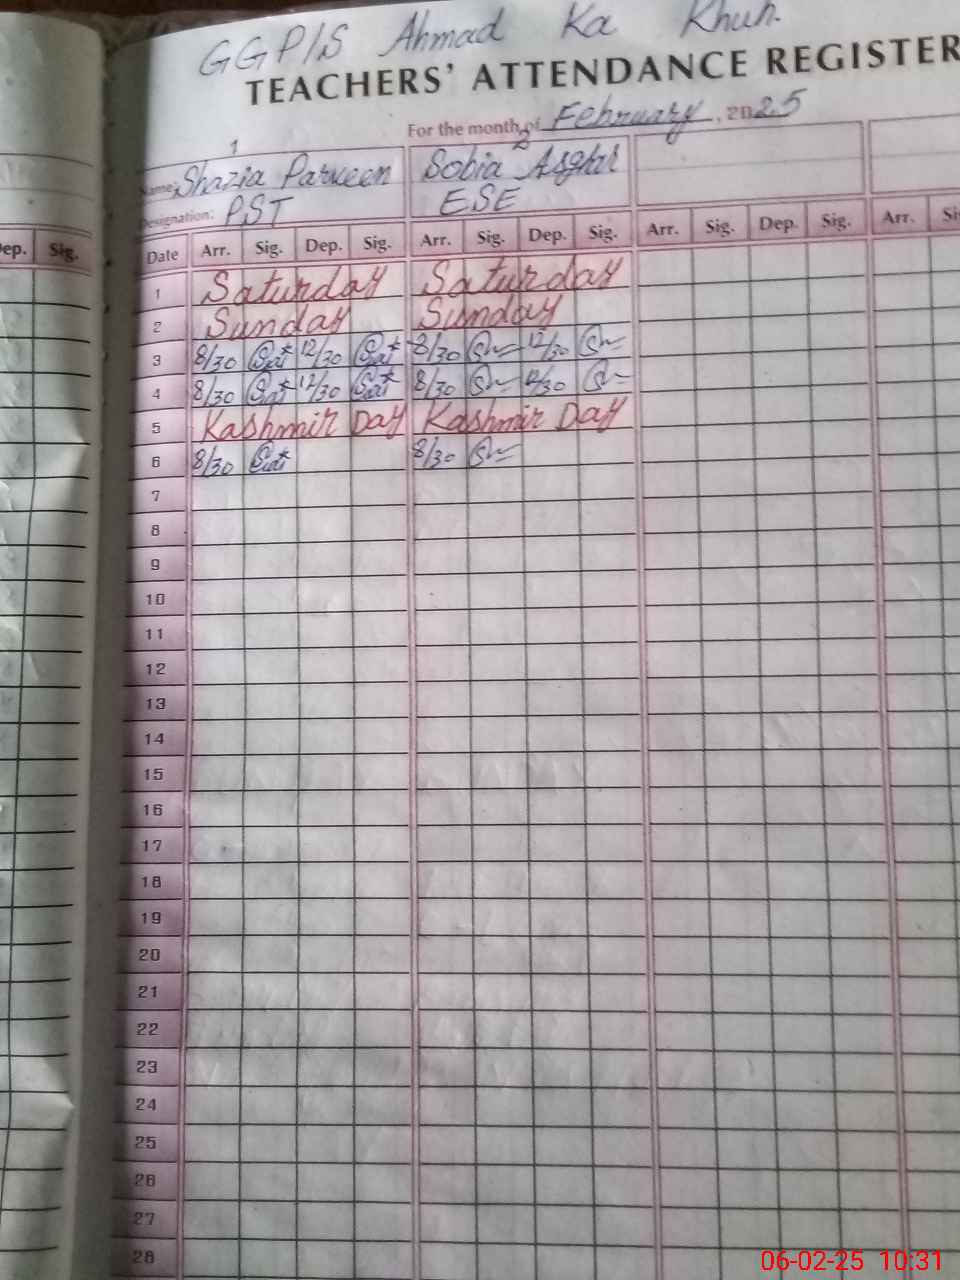 GGP/S Ahmad Ka Khuh.
TEACHERS' ATTENDANCE REGISTER
For the month of February, 2025
1 2
Name: Shazia Parveen Sobia Asghar
Designation: PST ESE
Dep. Sig. Date Arr. Sig. Dep. Sig. Arr. Sig. Dep. Sig. Arr. Sig. Dep. Sig. Arr. Si
1 Saturday Saturday
2 Sunday Sunday
3 8/30 12/30 8/30 12/30
4 8/30 12/30 8/30 12/30
5 Kashmir Day Kashmir Day
6 8/30 8/30
7
8
9
10
11
12
13
14
15
16
17
18
19
20
21
22
23
24
25
26
27
28
06-02-25 10:31